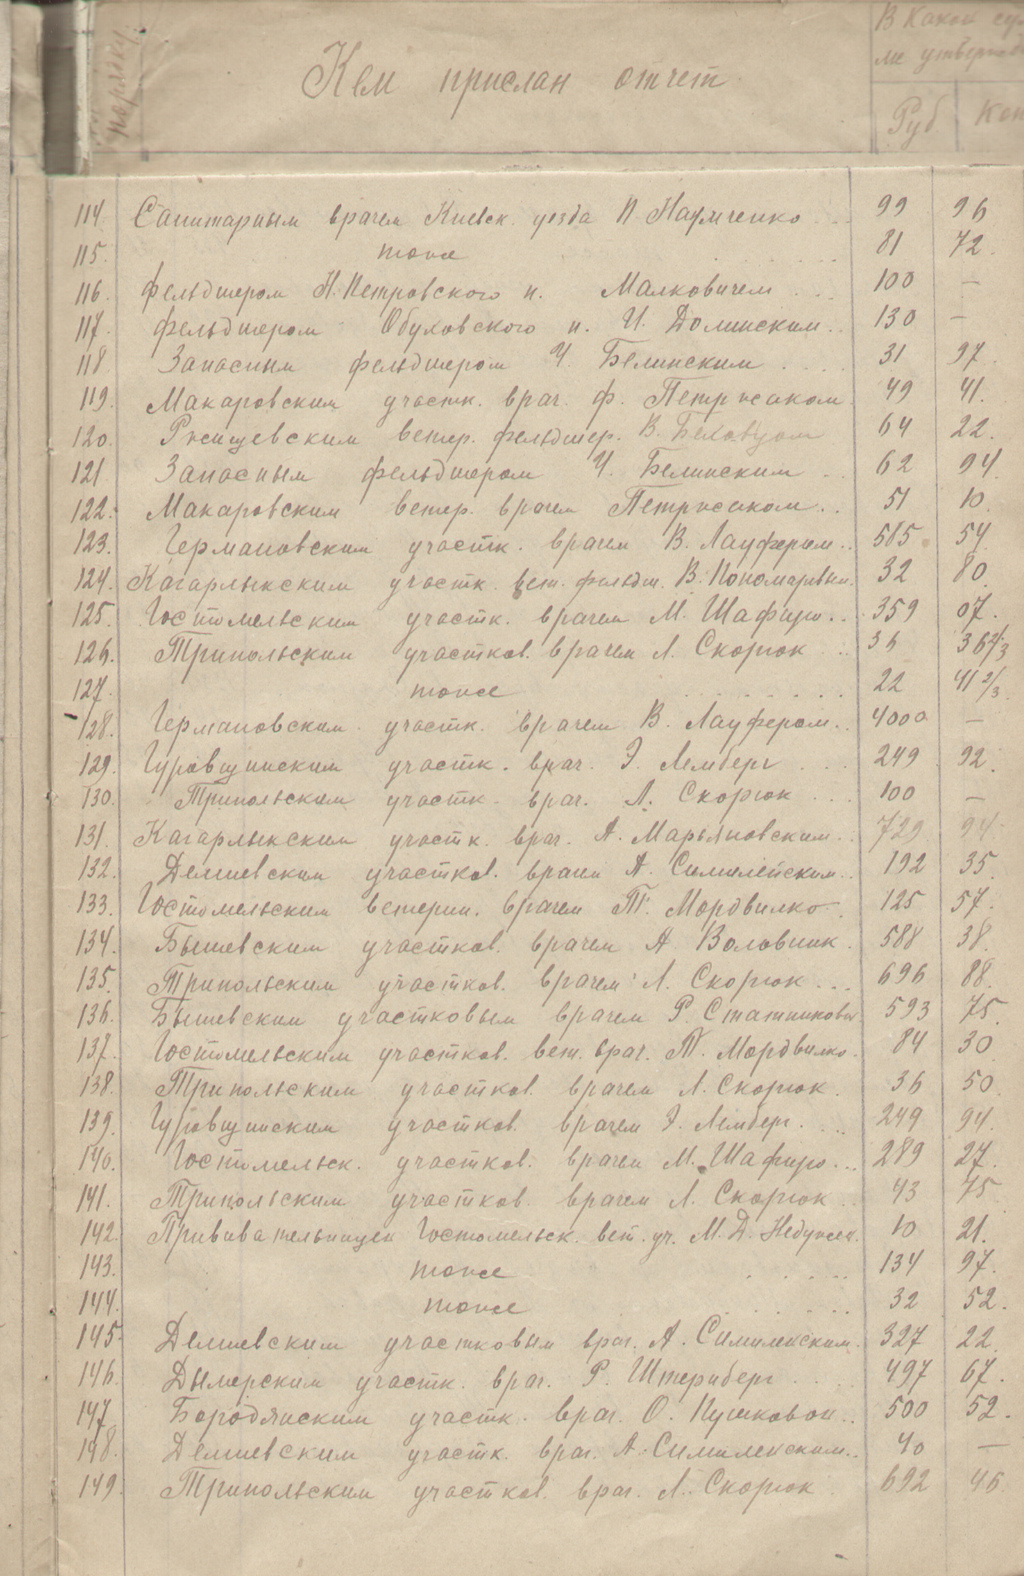 порядку
Кем прислан отчет
В какой сум
ме утвержд
Руб Коп
114. Санитарным врачем Киевск. уезда П. Наумченко 99 96
115. тоже 81 72
116. фельдшером Н. Петровского п. Малковичем 100 —
117. фельдшером Обуховского п. И. Долинским 130 —
118. Запасным фельдшером Ч. Белинским 31 97
119. Макаровским участк. врач. Ф. Петрусаком 49 41
120. Ржищевским ветер. фельдшер. В. 64 22
121. Запасным фельдшером Ч. Белинским 62 94
122. Макаровским ветер. врачем Петрусаком 51 10
123. Германовским участк. врачем В. Лауфером 585 54
124. Кагарлыкским участк. вет. фельдш. В. Пономаревым 32 80
125. Гостомельским участк. врачем М. Шафиро 359 07
126. Трипольским участков. врачем Л. Скорюк 36 36 2/3
127. тоже 22 41 2/3
128. Германовским участк. врачем В. Лауфером 4000 —
129. Гуровщинским участк. врач. Э. Лемберг 249 92
130. Трипольским участк. врач. Л. Скорюк 100 —
131. Кагарлыкским участк. врач. А. Марьяновским 729 94
132. Демиевским участков. врачем А. Симилейским 192 35
133. Гостомельским ветерин. врачем Т. Мордвилко 125 57
134. Бышевским участков. врачем А. Воловник 588 38
135. Трипольским участков. врачем Л. Скорюк 696 88
136. Бышевским участковым врачем Р. Статниковым 593 75
137. Гостомельским участков. вет. врач. Т. Мордвилко 84 30
138. Трипольским участков. врачем Л. Скорюк 36 50
139. Гуровщинским участков. врачем Э. Лемберг 249 94
140. Гостомельск. участков. врачем М. Шафиро 289 27
141. Трипольским участков. врачем Л. Скорюк 43 75
142. Прививательницей Гостомельск. вет. уч. М. Д. 10 21
143. тоже 134 97
144. тоже 32 52
145. Демиевским участковым врач. А. Симилейским 327 22
146. Дымерским участк. врач. Р. Штернберг 497 67
147. Бородянским участк. врач. О. Пушковой 500 52
148. Демиевским участк. врач. А. Симилейским 40 —
149. Трипольским участков. врач. Л. Скорюк 692 46